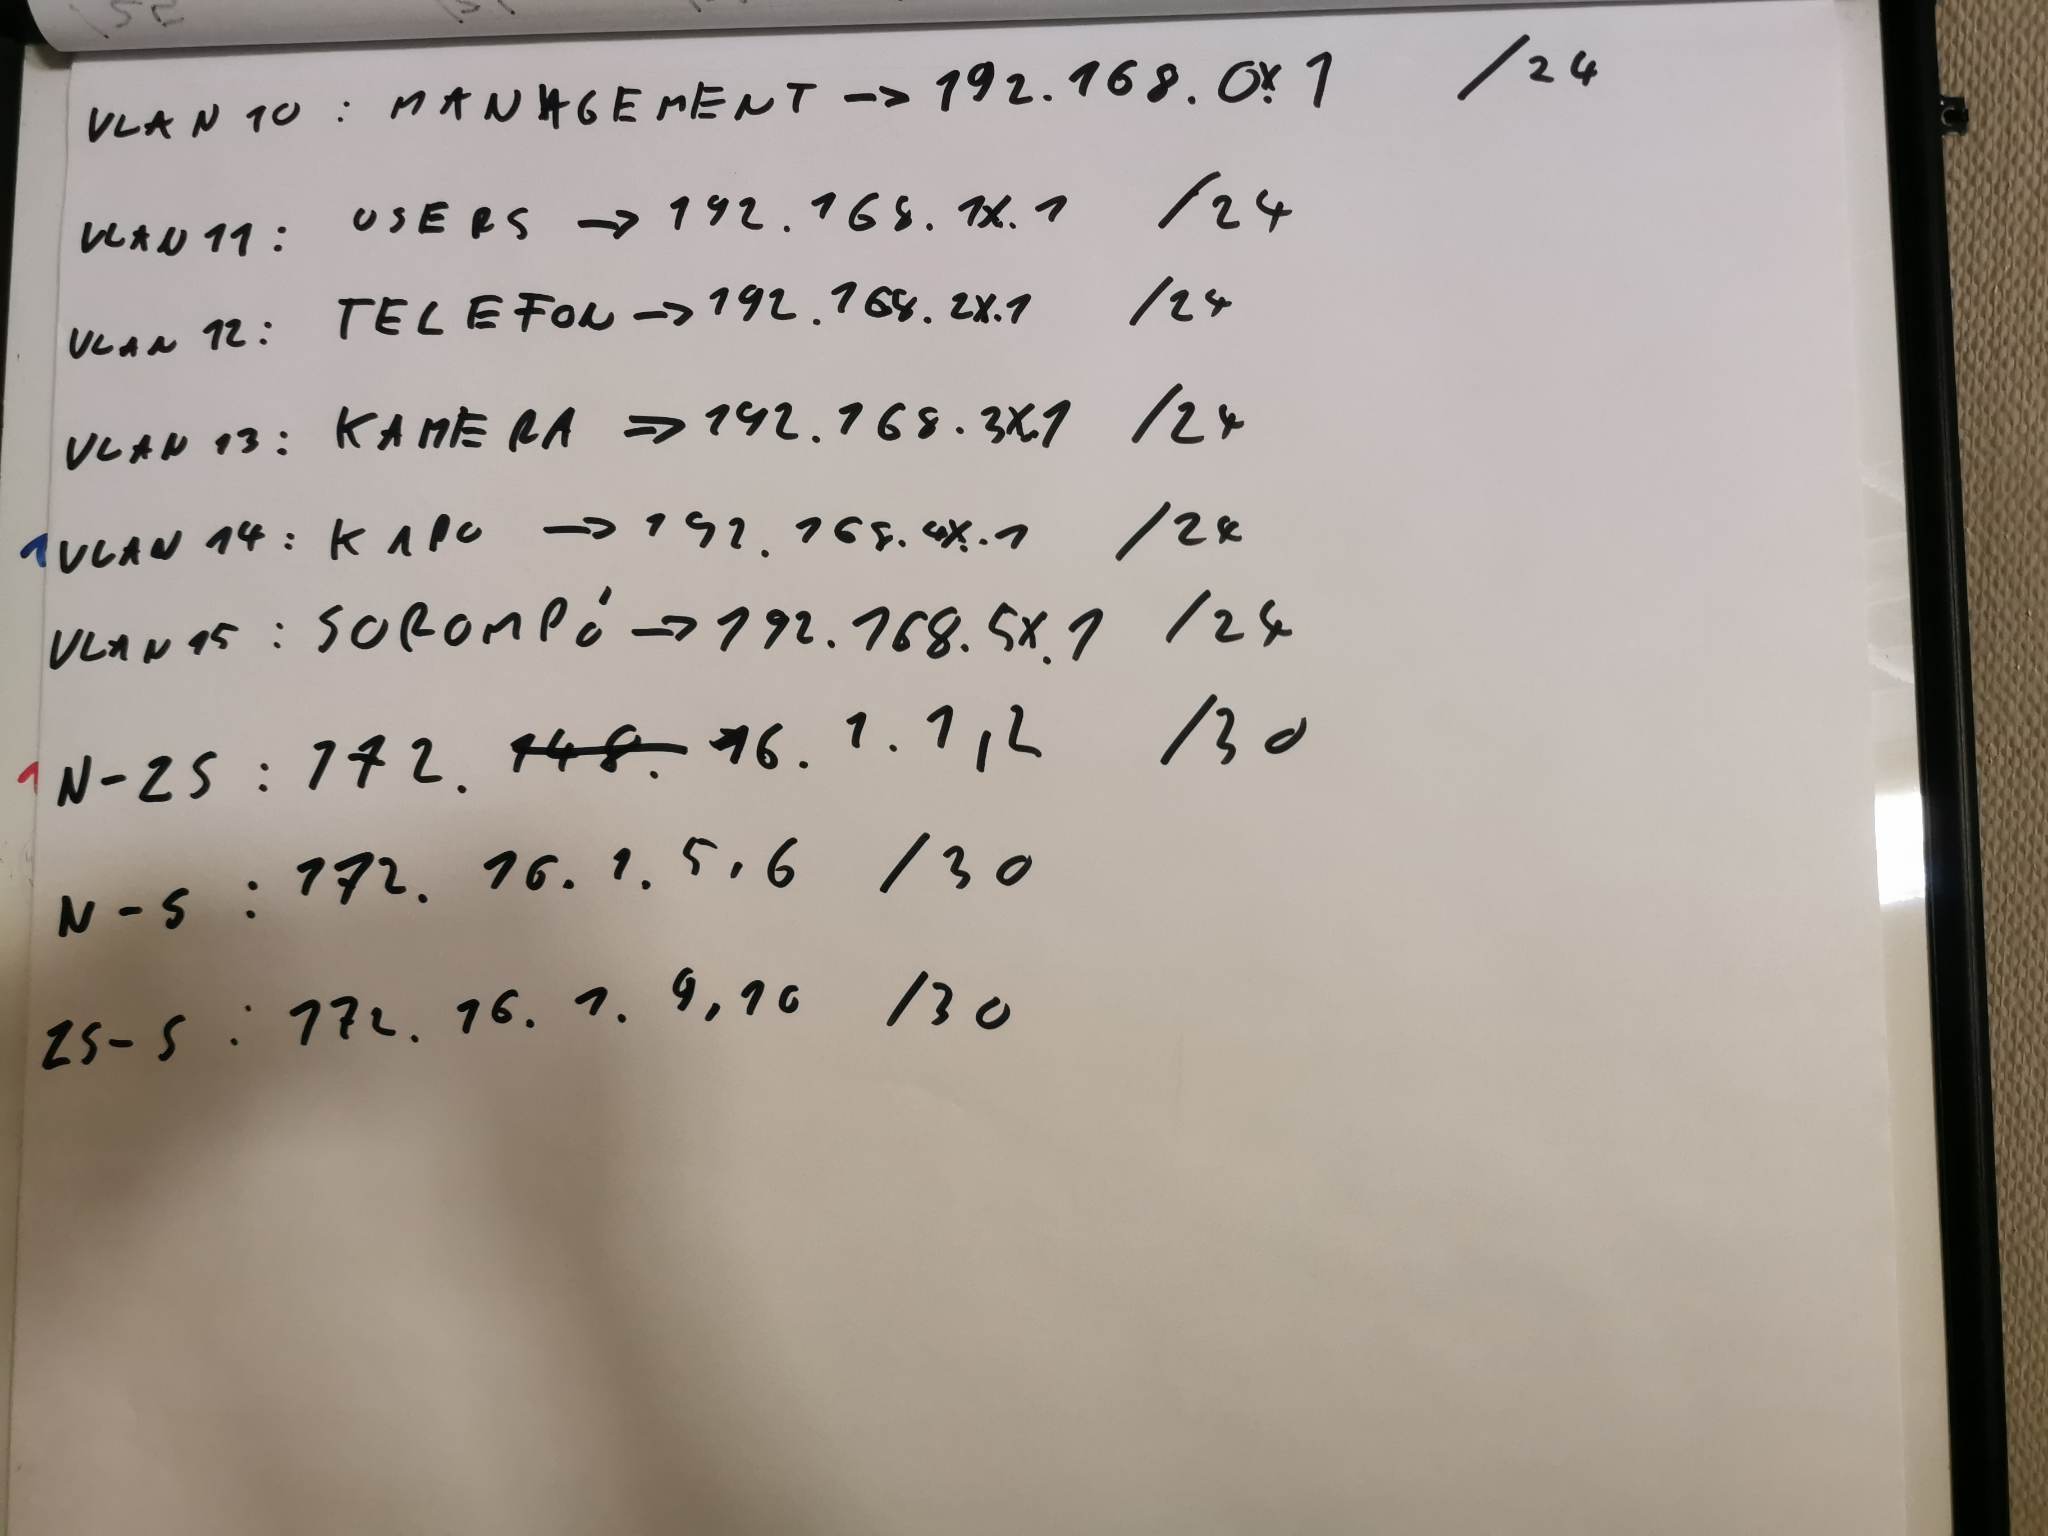 VLAN 10 : MANAGEMENT -> 192.168.0x.1 /24
VLAN 11: USERS -> 192.168.1x.1 /24
VLAN 12: TELEFON -> 192.168.2x.1 /24
VLAN 13: KAMERA => 192.168.3x.1 /24
VLAN 14: KAPU -> 192.168.4x.1 /24
VLAN 15: SOROMPÓ -> 192.168.5x.1 /24
N-ZS : 172. 148. 16. 1. 1,2 /30
N-S : 172. 16. 1. 5,6 /30
ZS-S : 172. 16. 1. 9,10 /30